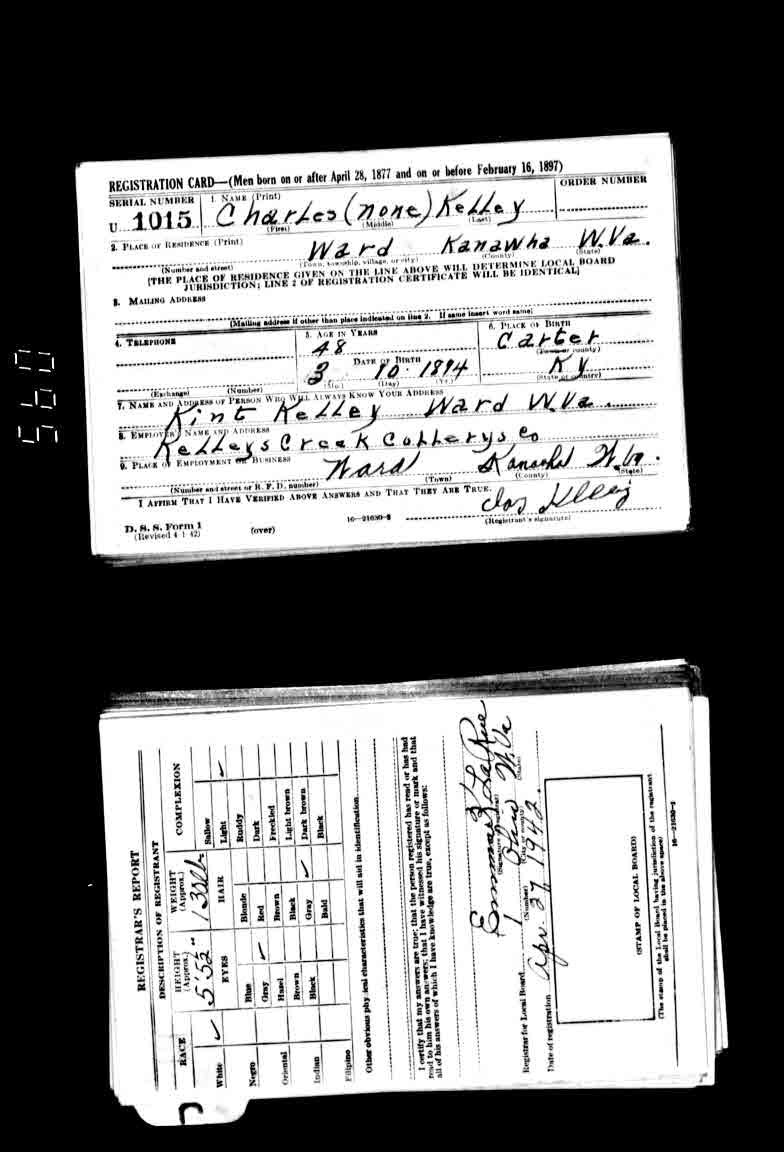 REGISTRATION CARD—(Men born on or after April 28, 1877 and on or before February 16, 1897)
SERIAL NUMBER 1. NAME (Print) ORDER NUMBER
U 1015 Charles (none) Kelley
(First) (Middle) (Last)
2. PLACE OF RESIDENCE (Print)
Ward Kanawha W.Va.
(Number and street) (Town, township, village, or city) (County) (State)
[THE PLACE OF RESIDENCE GIVEN ON THE LINE ABOVE WILL DETERMINE LOCAL BOARD
JURISDICTION; LINE 2 OF REGISTRATION CERTIFICATE WILL BE IDENTICAL]
3. MAILING ADDRESS
[Mailing address if other than place indicated on line 2. If same insert word same]
4. TELEPHONE 5. AGE IN YEARS 6. PLACE OF BIRTH
48 Carter
(Town or county)
DATE OF BIRTH
3 10 1894 Ky
(Exchange) (Number) (Mo.) (Day) (Yr.) (State or country)
7. NAME AND ADDRESS OF PERSON WHO WILL ALWAYS KNOW YOUR ADDRESS
Kint Kelley Ward W.Va.
8. EMPLOYER'S NAME AND ADDRESS
Kelleys Creek Collerys Co
9. PLACE OF EMPLOYMENT OR BUSINESS
Ward Kanawha W.Va.
(Number and street or R. F. D. number) (Town) (County) (State)
I AFFIRM THAT I HAVE VERIFIED ABOVE ANSWERS AND THAT THEY ARE TRUE.
D. S. S. Form 1
(Revised 4-1-42) (over) 16—21630-2 (Registrant's signature)
095
REGISTRAR'S REPORT
DESCRIPTION OF REGISTRANT
RACE HEIGHT (Approx.) WEIGHT (Approx.) COMPLEXION
5' 5½" 130 lb
White ✓ EYES HAIR Sallow
Light ✓
Negro Blue Blonde Ruddy
Gray ✓ Red Dark
Oriental Hazel Brown Freckled
Brown Black Light brown
Indian Black Gray ✓ Dark brown
Bald Black
Filipino
Other obvious physical characteristics that will aid in identification
I certify that my answers are true; that the person registered has read or has had
read to him his own answers; that I have witnessed his signature or mark and that
all of his answers of which I have knowledge are true, except as follows:
Emma LaRue
(Signature of registrar)
Registrar for Local Board 1 W.Va
(Number) (City or county) (State)
Date of registration Apr. 27 1942.
(STAMP OF LOCAL BOARD)
(The stamp of the Local Board having jurisdiction of the registrant
shall be placed in the above space)
16—21630-2